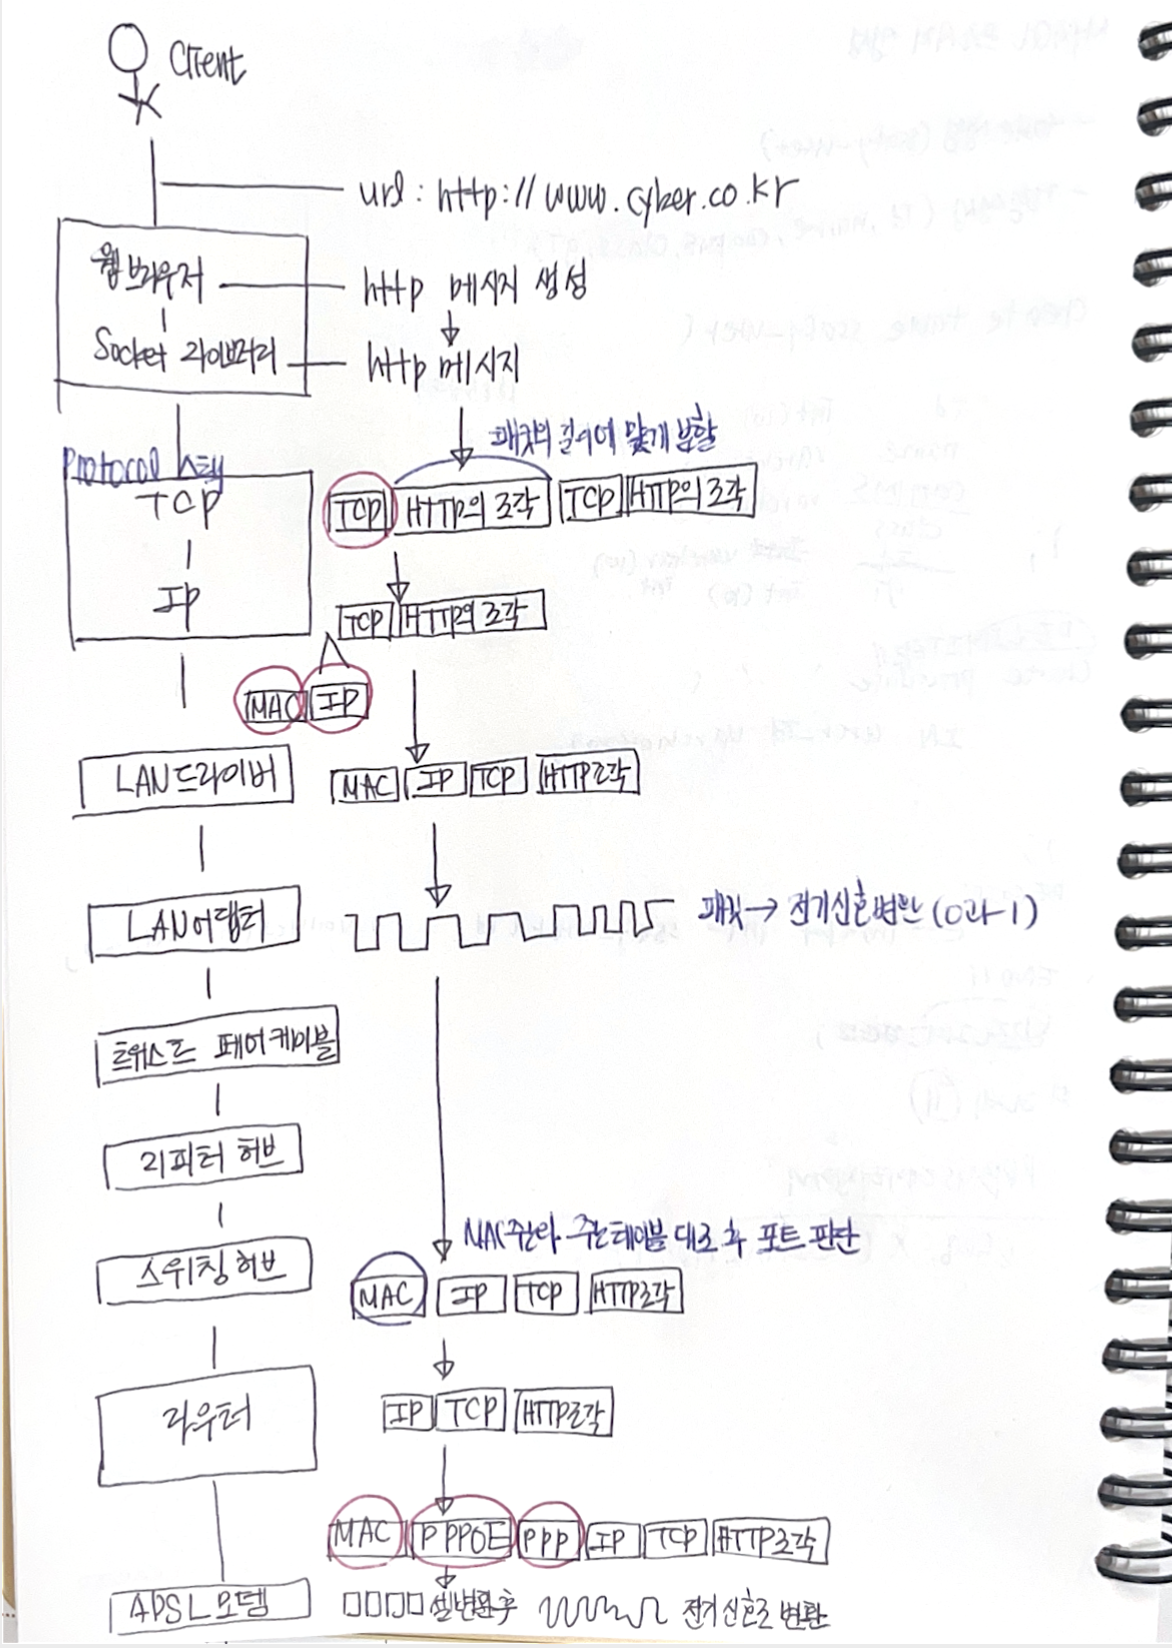 Client
url : http://www.cyber.co.kr
웹브라우저
http 메시지 생성
Socket 라이브러리
http 메시지
패킷의 길이에 맞게 분할
Protocol 스택
TCP
TCP HTTP의 조각 TCP HTTP의 조각
IP
TCP HTTP의 조각
MAC IP
LAN드라이버
MAC IP TCP HTTP조각
LAN어댑터
패킷 → 전기신호변환 (0과 1)
트위스트 페어케이블
리피터 허브
MAC주소와 주소테이블 대조 후 포트 판단
스위칭허브
MAC IP TCP HTTP조각
라우터
IP TCP HTTP조각
MAC PPPOE PPP IP TCP HTTP조각
APSL모뎀
셀변환 후 전기신호로 변환